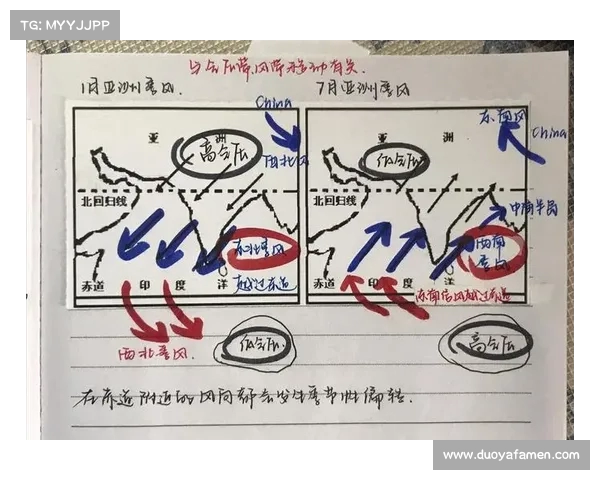 TG: MYYJJPP
与气压带、风带移动有关.
1月亚洲季风.
7月亚洲季风
China
亚 洲
高气压
西北风
北回归线
东北季风
越过赤道
赤道 印 度 洋
东南风
China
亚 洲
低气压
北回归线
中南半岛
西南季风
东南信风越过赤道
赤道 印 度 洋
西北季风.
低气压
高气压
在赤道附近的风向都会发生季节性偏转.
www.duoyafamen.com